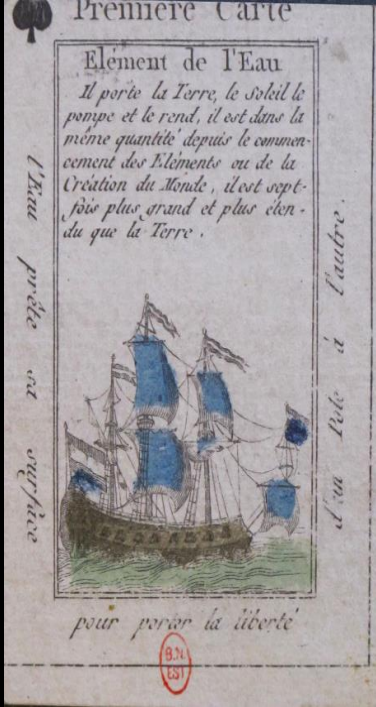 Première Carte
Elément de l'Eau
Il porte la Terre, le Soleil le
pompe et le rend, il est dans la
même quantité depuis le commen-
cement des Eléments ou de la
Création du Monde, il est sept-
fois plus grand et plus éten-
du que la Terre.
l'Eau prête sa surface
d'un Pole à l'autre.
pour porter la liberté
B.N.
EST